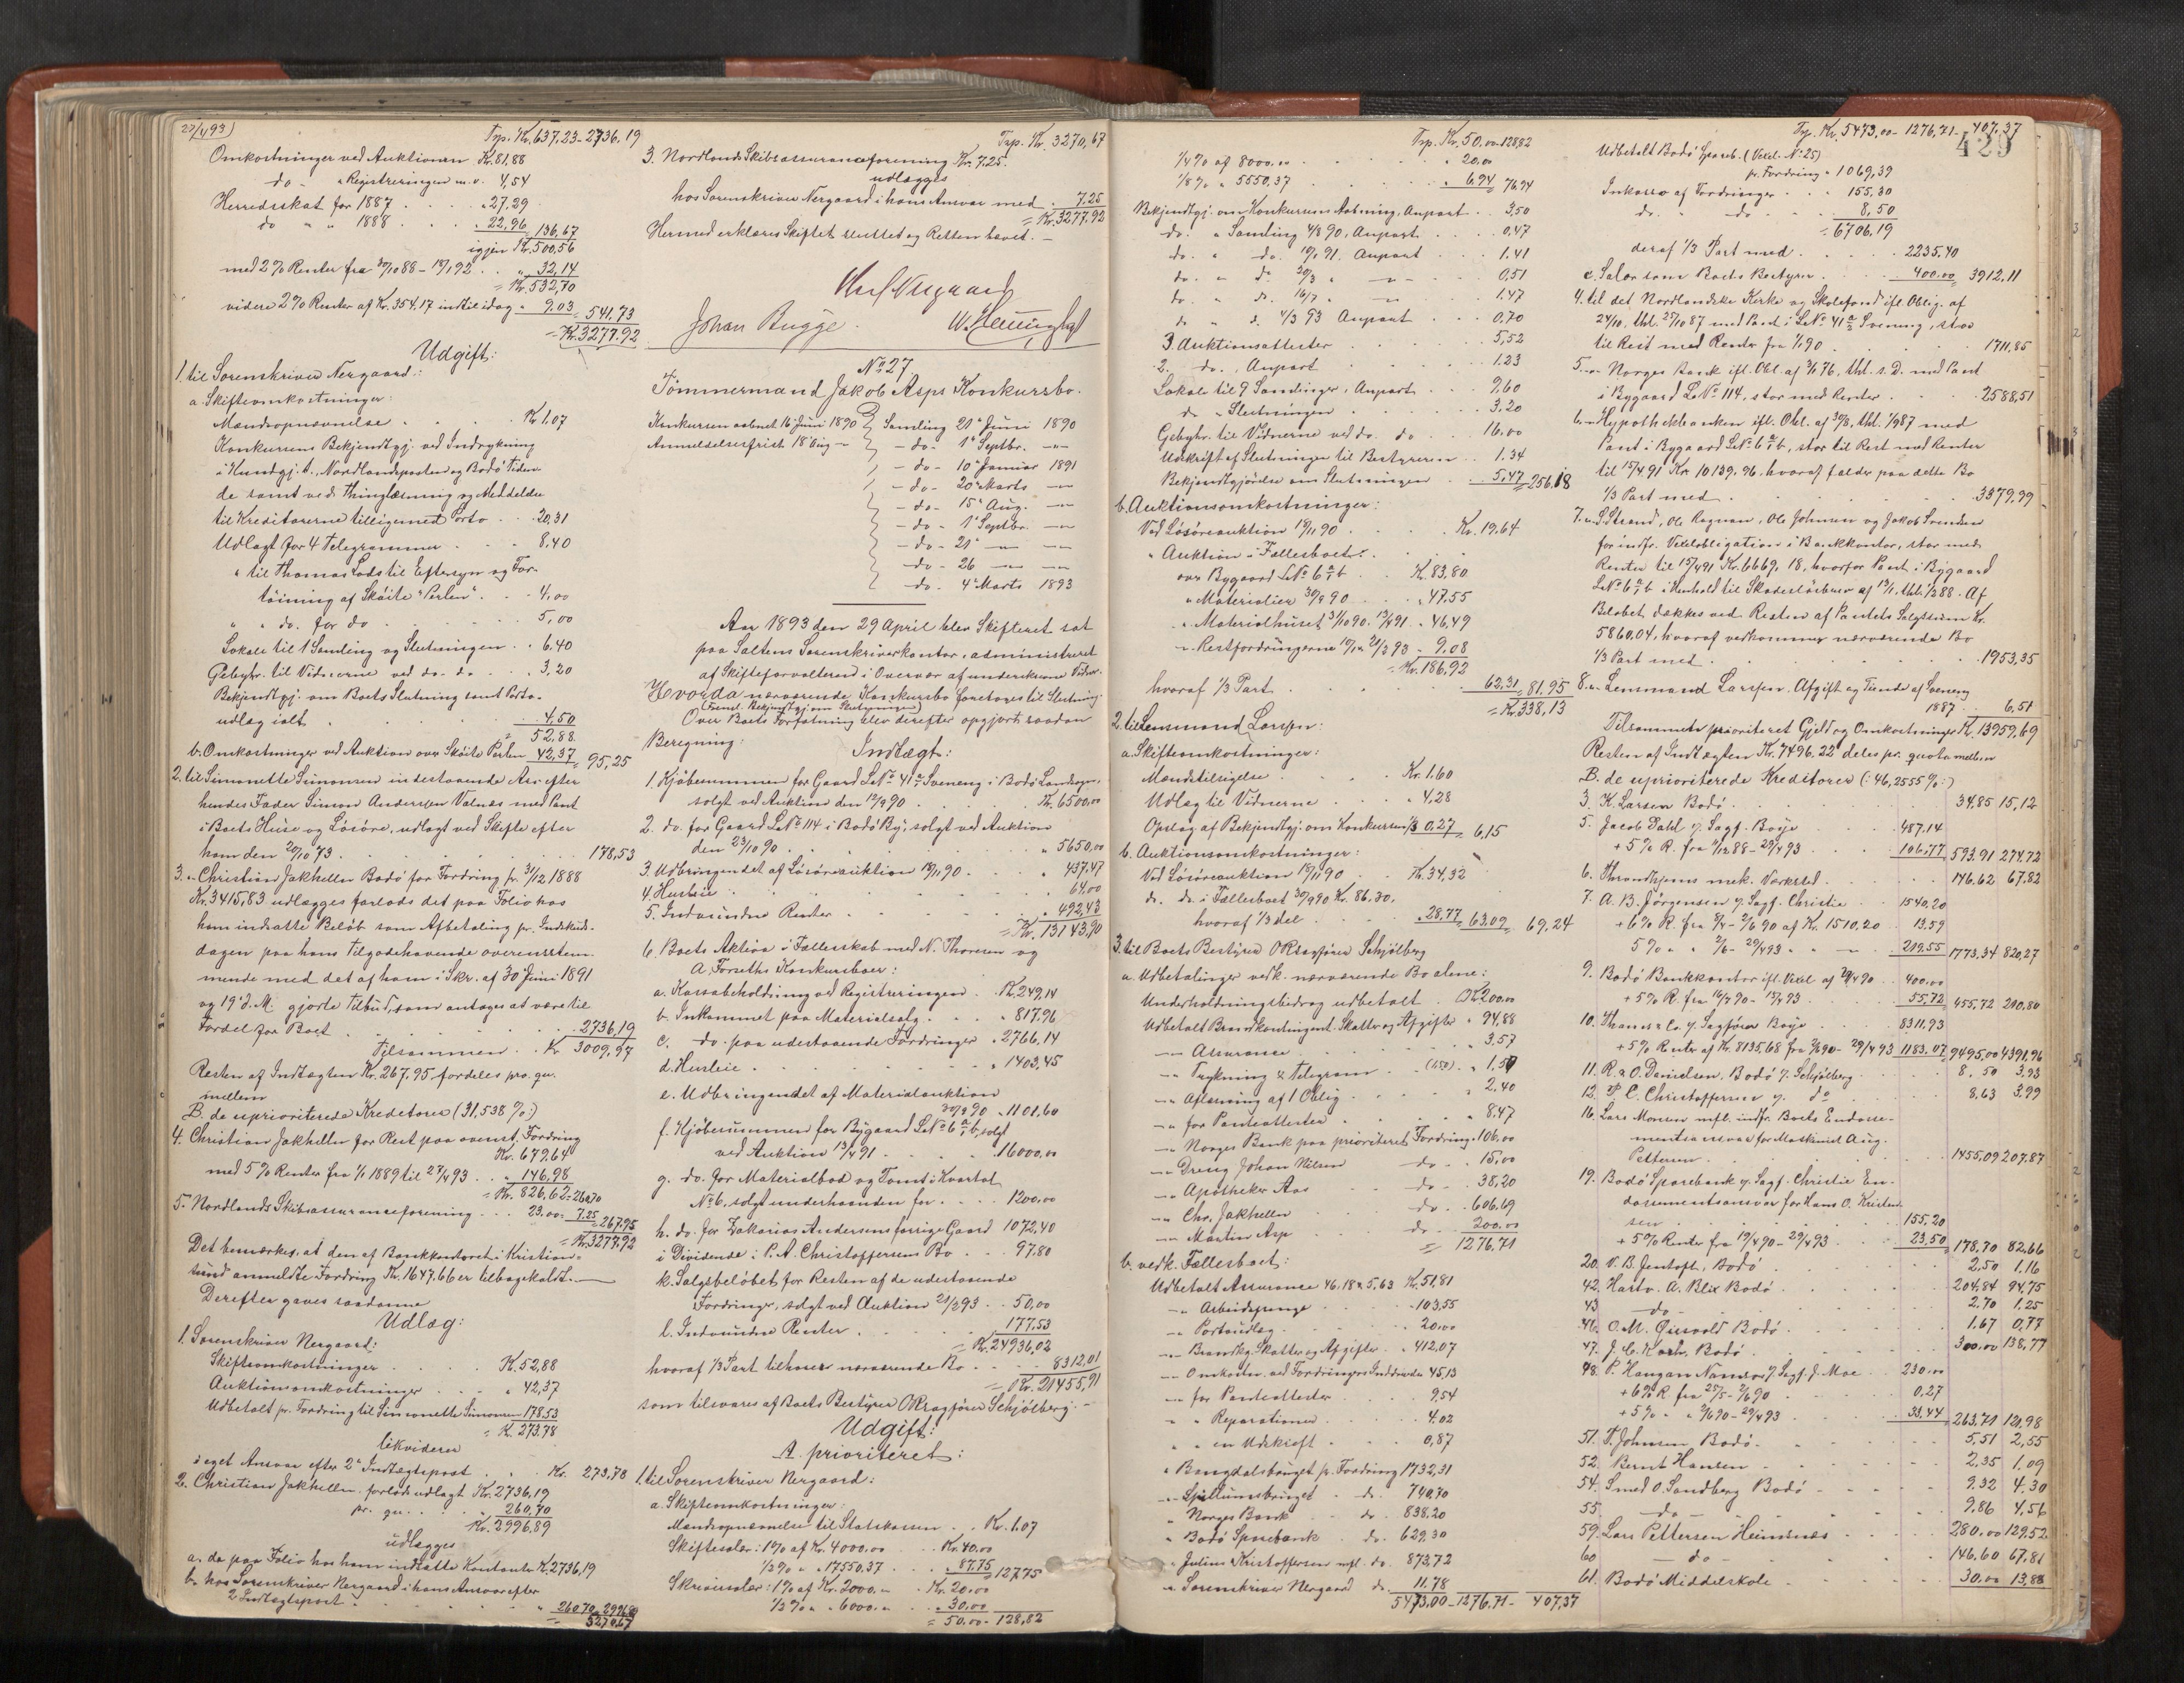 27/4 93)
Trp. Kr. 637,23 - 2736,19
Omkostninger ved Auktionen Kr. 81,88
do - " Registreringen m.v. 4,54
Herredsskat for 1887 . . . " 27,29
do " " 1888 . . . 22,96 136,67
igjen Kr. 500,56
med 2 % Renter fra 30/10 88 - 18/1 92 . . " 32,14
= Kr. 532,70
videre 2 % Renter af Kr. 354,17 indtil idag " 9,03 = 541,73
= Kr. 3277,92
Udgift:
1. til Sorenskriver Nergaard:
a. Skifteomkostninger:
Mandsopnævnelse . . . Kr 1.07
Konkursens Bekjendtgj. ved Indrykning
i Kundgj. t., Nordlandsposten og Bodö Tiden-
de samt ved Thinglæsning og Meddelelse
til Kreditorerne tilligemed Porto . . 20,31
Udlagt for 4 Telegrammer . . . 8,40
" til Thomas Lods til Eftersyn og For-
töining af Sköite "Perlen" . . 4,00
" " do. for do . . . 5,00
Lokale til 1 Samling og Slutningen . . 6.40
Gebyhr. til Vidnerne ved do. do . . 3,20
Bekjendtgj. om Boets Slutning samt Porto-
udlæg ialt . . . 4,50
52,88.
b. Omkostninger ved Auktion over Sköite Perlen 42,37 = 95,25
2. til Simonette Simonsen indestaaende Arv efter
hendes Fader Simon Anderssen Valnæs med Pant
i Boets Huse og Lösöre, udlagt ved Skifte efter
ham den 20/10 73 . . . 178,53
3. " Christian Jakhelln Bodö for Fordring pr. 31/12 1888
Kr. 3415,83 udlægges forlods det paa Folio hos
ham indsatte Belöb som Afbetaling pr. Indskuds-
dagen paa hans Tilgodehavende overensstem-
mende med det af ham i Skr. af 30 Juni 1891
og 19' d. M. gjorte Tilbud, som antages at være til
Fordel for Boet . . . 2736,19
Tilsammen . . Kr 3009,97
Resten af Indtægten Kr. 267,95 fordeles pro. qu.
mellem
B. de uprioriterede Kreditorer (31,538 %:)
4. Christian Jakhelln for Rest paa ovenst. Fordring
Kr. 679,64
med 5 % Renter fra 1/1 1889 til 27/4 93 . . " 146,98
= Kr. 826,62 = 260,70
5. Nordlands Skibsassuranceforening . . . 23.00 = 7.25 = 267,95
= Kr. 3277,92
Det bemærkes, at den af Bankkontoret i Kristian-
sund anmeldte Fordring Kr. 1647.66 er tilbagekaldt. —
Derefter gaves saadanne
Udlæg:
1. Sorenskriver Nergaard:
Skifteomkostninger . . . Kr. 52,88
Auktionsomkostninger . . . " 42,37
Udbetalt pr. Fordring til Simonette Simonsen 178.53
= K. 273,78
likviderer
i eget Ansvar efter 2' Indtægtspost . . . Kr. 273,78
2. Christian Jakhelln forlods udlagt Kr. 2736,19
pr. qu. . . . 260,70
Kr. 2996,89
udlægges
a. de paa Folio hos ham indsatte Kontanter K. 2736,19
b. hos Sorenskriver Nergaard i hans Ansvar efter
2 Indtægtspost . . . " 260.70 = 2996,89
= 3270,67
Trp. Kr. 3270,67
3. Nordlands Skibsassuranceforening Kr. 7.25
udlægges
hos Sorenskriver Nergaard i hans Ansvar med . 7.25
= Kr. 3277.92
Hermed erklæres Skiftet sluttet og Retten hævet. —
Johan Bugge.
No 27
Tömmermand Jakob Asps Konkursbo.
Konkursen aabnet 16 Juni 1890 Samling 20' Juni 1890
Anmeldelsesfrist 18' Aug - - do - 1' Septbr. — " —
- do - 10' Januar 1891
- do - 20' Marts — " —
- do - 15' Aug. — " —
- do - 1' Septbr. — " —
- do - 21' — " — — " —
- do - 26 — " — — " —
- do - 4' Marts 1893
Aar 1893 den 29 April blev Skifteret sat
paa Saltens Sorenskriverkontor, administreret
af Skifteforvalteren i Overvær af underskrevne Vidner.
Hvorda nærværende Konkursbo foretoges til Slutning.
(Fremt. Bekjendtgj. om Slutningen)
Over Boets Forfatning blev derefter opgjort saadan
Beregning:
Indtægt:
1. Kjöbesummen for Gaard L.No 41 a/2 Sveneng i Bodö Landsogn,
solgt ved Auktion den 12/9 90 . . . Kr. 6500,00
2. do. for Gaard L.No 114 i Bodö By, solgt ved Auktion
den 23/10 90 . . . " 5650,00
3. Udbringendet af Lösöreauktion 19/11 90 . . . " 437,47
4. Husleie . . . " 64.00
5. Indvundne Renter . . . " 492,43
= Kr. 13143,90
6. Boets Aktiva i Fællesskab med N. Thoresen og
A. Forseths Konkursboer:
a. Kassabeholdning ved Registreringen . Kr. 249,14
b. Indkommet paa Materialsalg . . . " 817,96
c. do. paa udestaaende Fordringer " 2766,14
d. Husleie . . . " 1403,45
e. Udbringendet af Materialauktion
30/9 90 " 1101.60
f. Kjöbesummen for Bygaard L.No 6 a/1 b, solgt
ved Auktion 13/4 91 . . . 16000,00
g. do. for Materialbod og Tomt i Kvartal
No 6, solgt underhaanden for . . . 1200,00
h. do. for Zakarias Andersens forrige Gaard 1072,40
i Dividende i P. A. Christoffersens Bo . . . 97.80
k. Salgsbelöbet for Resten af de udestaaende
Fordringer, solgt ved Auktion 21/2 93 . . 50,00
l. Indvundne Renter . . . 177.53
= Kr. 24936,02
hvoraf 1/3 Part tilhörer nærværende Bo . . . 8312,01
= Kr. 21455,91
som tilsvares af Boets Bestyrer ORsagförer Schjölberg. -
Udgift:
A. prioriteret:
1. til Sorenskriver Nergaard:
a. Skifteomkostninger:
Mandsopnævnelse til Statskassen . . Kr. 1.07
Skiftesalær: 1 % af Kr. 4000.00 . . Kr. 40.00
1/2 % " " 17550.37 . . " 87.75 = 127.75
Skriversalær: 1 % af Kr. 2000.00 . Kr. 20,00
1/2 % " " 6000.00 . " 30.00
= 50,00 - 128,82
Trp. Kr. 50.00 - 128,82
1/4 % af 8000.00 . . . " 20,00
1/8 % " 5550,37 . . . " 6.94 = 76.94
Bekjendtgj. om Konkursens Aabning, Anpart . . 3,50
do. " Samling 4/8 90, Anpart . . . 0,47
do. " do. 10/1 91. Anpart . . . 1.41
do. " do 20/3 " — " — . . . 0,51
do. " do. 16/7 " — " — . . . 1.47
do " d. 4/3 93 Anpart . . . 0,70
3. Auktionsattester . . . 5,52
2. do., Anpart . . . 1.23
Lokale til 9 Samlinger, Anpart . . . 9,60
do " Slutningen . . . 3.20
Gebyhr. til Vidnerne ved do. do . . 16.00
Udskrift af Slutningen til Bestyreren . . 1.34
Bekjendtgjörelse om Slutningen . . . 5,47 = 256.18
b. Auktionsomkostninger:
Ved Lösöreauktion 19/11 90 . . . Kr. 19.64
" Auktion i Fællesboet:
over Bygaard L.No 6 a/1 b . . Kr. 83,80
" Materialier 30/9 90 . . . " 47.55
" Materialhuset 31/10 90. 13/4 91 . " 46,49
" Restfordringerne 10/1 & 21/2 93 - 9,08
= Kr. 186,92
hvoraf 1/3 Part . . . 62,31 = 81,95
= Kr. 338,13
2. til Lensmand Larssen:
a. Skifteomkostninger:
Mandstilsigelse . . . Kr. 1.60
Udlæg til Vidnerne . . . " 4,28
Opslag af Bekjendtgj. om Konkursen 1/3 0,27 = 6,15
b. Auktionsomkostninger:
Ved Lösöreauktion 19/11 90 . . Kr. 34,32
do. do. i Fællesboet 30/9 90 Kr. 86.30.
hvoraf 1/3 del . . . " 28,77 = 63,09 = 69,24
3. til Boets Bestyrer ORsagförer Schjölberg
a. Udbetalinger vedk. nærværende Bo alene:
Underholdningsbidrag udbetalt . Kr. 200.00
Udbetalt Brandkontingent. Skatter og Afgifter " 94,88
— " Assurance . . . 3.57
— " Trykning & Telegram . . (1.50) . " 1.50
— " Aflæsning af 1 Oblig . . . " 2.40
— " for Panteattester . . . " 8.47
— " Norges Bank paa prioriteret Fordring " 106,00
— " Dreng Johan Nilsen — do - . 15,00
— " Apotheker Aas — do - . 38,20
— " Chr. Jakhelln — do - . 606,69
— " Martin Asp — do - . 200.00
= 1276,71
b. vedk. Fællesboet:
Udbetalt Assurance 46,18 & 5,63 Kr. 51,81
— " Arbeidspenge . . . " 103,55
— " Portoudlæg . . . " 20,00
— " Brandkg. Skatter og Afgifter . " 412,07
— " Omkostn. ved Fordringers Inddrivelse 45,13
— " for Panteattester . . . 9,54
— " " Reparationer . . . 4.02
— " " en Udskrift . . . 0,87
" Bangdalsbruget pr. Fordring 1732,31
— " Spillumsbruget - do. 740,70
" Norges Bank - do. 838,20
" Bodö Sparebank - do. 629,30
" Julius Kristoffersen mfl. do. 873,72
" Sorenskriver Nergaard do. 11.78
5473,00 - 1276,71 - 407,37
Trp. Kr. 5473,00 - 1276,71 - 407,37
429
Udbetalt Bodö Spareb. (Vexel. No 25)
pr. Fordring " 1069,39
Inkasso af Fordringer . . . 155,30
do. " — do — . . . 8,50
= 6706.19
deraf 1/3 Part med . . . 2235.40
c. Salær som Boets Bestyrer . . . 400.00 = 3912,11
4. til det Nordlandske Kirke og Skolefond ifl. Oblig. af
24/10, thl. 27/10 87 med Pant i L.No 41 a/2 Svenseng, stor
til Rest med Renter fra 1/1 90 . . . 1711,85
5. — " Norges Bank ifl. Obl. af 3/1 76, thl. s. D. med Pant
i Bygaard L.No 114, stor med Renter . . . 2588,51
6. — " Hypothekbanken ifl. Obl. af 30/8, thl. 1/9 87 med
Pant i Bygaard L.No 6 a/1 b, stor til Rest med Renter
til 15/4 91 Kr. 10139.96, hvoraf falder paa dette Bo
1/3 Part med . . . 3379,99
7. " S. Strand, Ole Ragnan, Ole Johnsen og Jakob Svendsen
for indfr. Vexelobligation i Bankkontor, stor med
Renter til 15/4 91 Kr. 6669,18, hvorfor Pant i Bygaard
L.No 6 a/1 b i Henhold til Skadeslösbrev af 13/1, thl. 1/2 88. Af
Belöbet dækkes ved Resten af Pantets Salgssum Kr.
5860,04, hvoraf vedkommer nærværende Bo
1/3 Part med . . . 1953,35
8. " Lensmand Larssen, Afgift og Tiende af Sveneng
1887 . . 6,51
Tilsammen prioriteret Gjeld og Omkostninger K. 13959,69
Resten af Indtægten Kr. 7496.22 deles pr. quota mellem
B. de uprioriterede Kreditorer (: 46,2555 %:)
3. K. Larsen Bodö . . . 34,85 15,12
5. Jacob Dahl v/ Sagf. Böye . . . 487.14
+ 5 % R. fra 9/12 88 - 29/4 93 . . 106.77 593.91 274.72
6. Throndhjems mek. Værksted . . . 146.62 67.82
7. A. B. Jörgensen v/ Sagf. Christie . . 1540,20
+ 6 % R. fra 9/4 - 2/6 90 af Kr. 1510,20 . . 13.59
5 % " " 2/6 - 29/4 93 " " — " — 219.55 1773.34 820,27
9. Bodö Bankkontor ifl. Vexel af 29/4 90 . . 400,00
+ 5 % R. fra 16/7 90 - 13/4 93 . . . 55,72 455,72 210,80
10. Thams & Co. v/ Sagförer Böye . . . 8311,93
+ 5 % Renter af Kr. 8135,68 fra 2/6 90 - 29/4 93 1183.07 9495,00 4391,96
11. R. & O. Danielsen, Bodö v/ Schjölberg . . . 8,50 3.93
12. P. C. Christoffersen v. do . . . 8,63 3,99
16. Lars Monsen mfl. indfr. Boets Endosse-
mentsansvar for Maskinist Aug.
Pettersen . . . 1455,09 207.87
19. Bodö Sparebank v/ Sagf. Christie En-
dossementsansvar for Hans O. Kristen-
sen . . . 155.20
+ 5 % Renter fra 19/4 90 - 29/4 93 . . . 23,50 178,70 82,66
20. V. B. Jentoft, Bodö . . . 2,50 1,16
42. Hartv. A. Blix Bodö . . . 204,84 94,75
43 — do — . . . 2.70 1.25
46. O. M. Qvisvold Bodö . . . 1.67 0,77
47. J. C. Koch. Bodö . . . 300.00 138,77
48. P. Haugan Namsos v/ Sagf. J. Moe . . 230.00
+ 6 % R fra 27/5 - 2/6 90 . . . 0,27
+ 5 % " " 2/6 90 - 29/4 93 . . . 33,44 263,71 121,98
51. T. Johnsen Bodö . . . 5,51 2,55
52. Bernt Hansen . . . 2,35 1,09
54. Smed O. Sandberg Bodö . . . 9.32 4.30
55. — do — . . . 9,86 4,56
59. Lars Pettersen Heimsnæs . . . 280,00 129,52
60 — do — . . . 146,60 67,81
61. Bodö Middelskole . . . 30,00 13,88